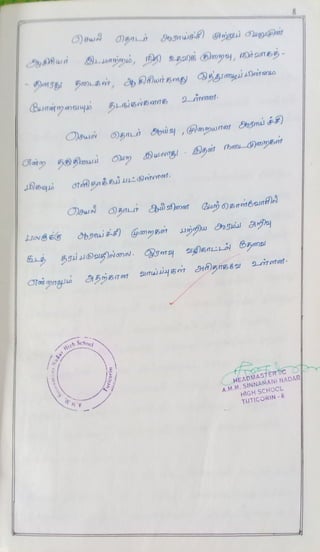 8
செயல் தொடர் ஆராய்ச்சி முற்றுப் பெறுமுன்
ஆசிரியர் இடமாற்றம், நிதி உதவிக் குறைவு, நிர்வாகத்-
-தினரது தடைகள், ஆசிரியர்களது ஒத்துழைப்பின்மை
போன்றவையும் தடங்கல்களாக உள்ளன.
செயல் தொடர் ஆய்வு, முறையான ஆராய்ச்சி
என்ற தகுதியைப் பெற இயலாது. இதன் நடைமுறைகள்
மிகவும் எளிதாக்கப்பட்டுள்ளன.
செயல் தொடர் ஆய்வினை மேற்கொள்வோரில்
பலருக்கு ஆராய்ச்சி முறைகள் பற்றிய அடிப்படை அறிவு
கூடத் தரப்படுவதில்லை. ஓரளவு வழிகாட்டல் தேவை
என்றாலும் அதற்கான வாய்ப்புகள் அரிதாகவே உள்ளன.
A.M.M. Sinnamani Nadar High School
HEADMASTER
A.M.M. SINNAMANI NADAR
HIGH SCHOOL
TUTICORIN - 8